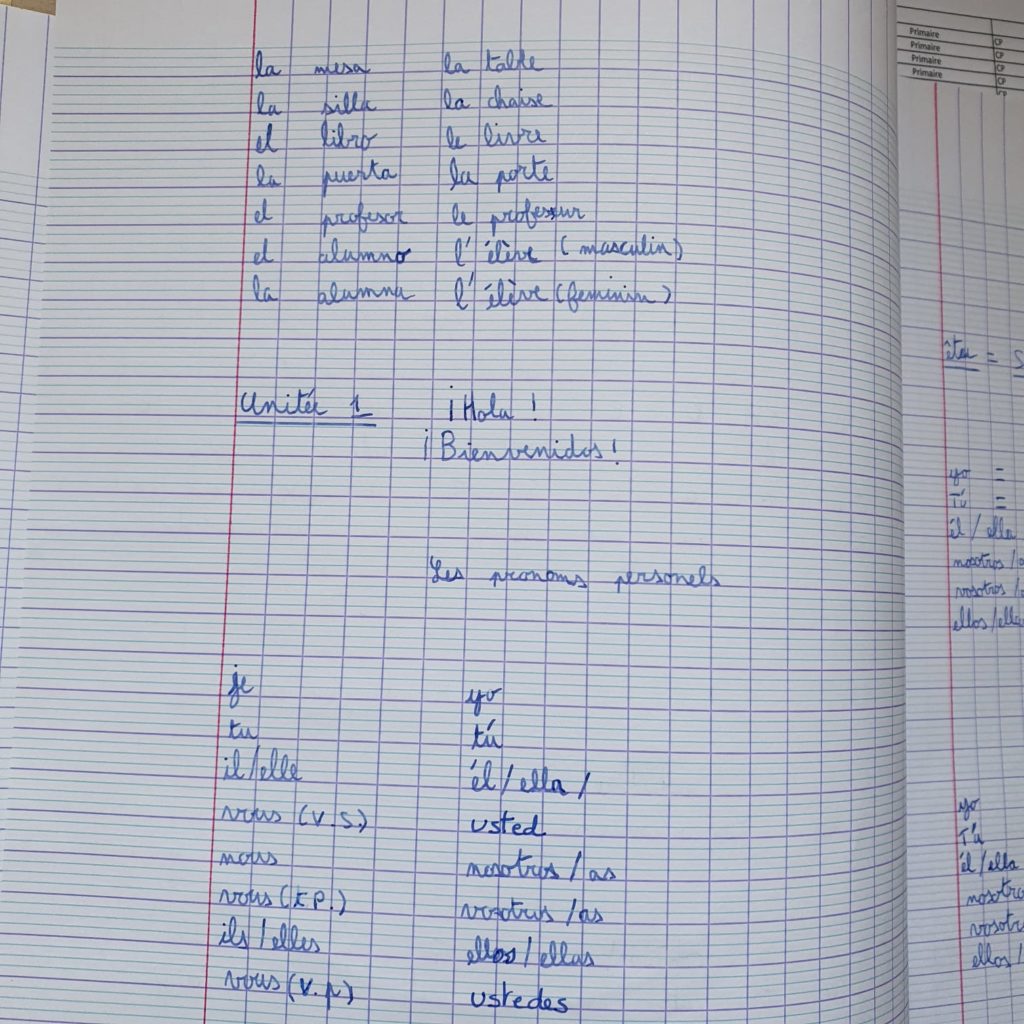 la mesa la table
la silla la chaise
el libro le livre
la puerta la porte
el profesor le professeur
el alumno l'élève (masculin)
la alumna l'élève (feminin)
Unitée 1 ¡Hola!
¡Bienvenidos!
Les pronoms personels
je yo
tu tú
il/elle él/ella/
vous (V.S.) usted
nous nosotros/as
vous (T.P.) vosotros/as
ils/elles ellos/ellas
vous (V.p) ustedes
Primaire CP
Primaire CP
Primaire CP
Primaire CP
être =
yo =
Tú =
él/ella
nosotros/
vosotros/
ellos/ella
yo
Tú
él/ella
nosotro
vosotr
ellos/